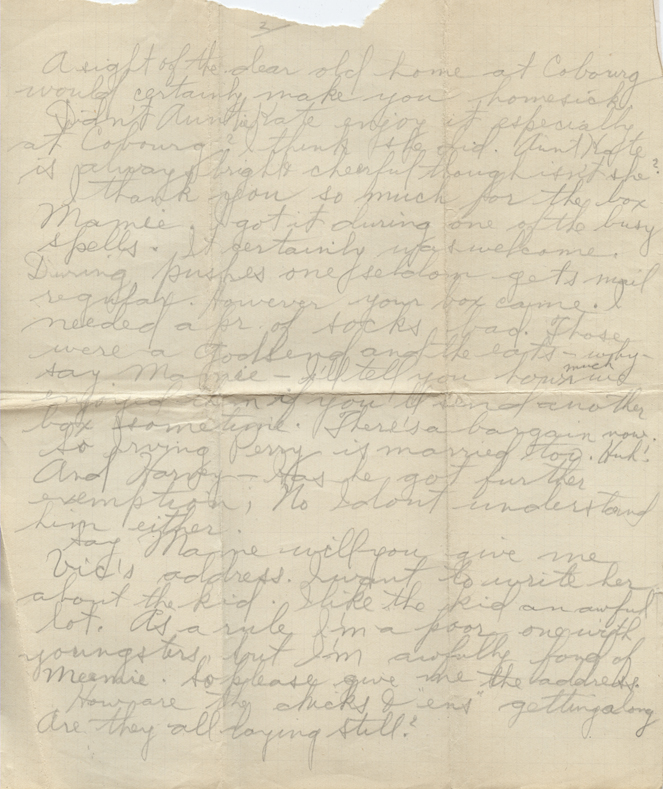 2
A sight of the dear old home at Cobourg
would certainly make you homesick.
Didn't Auntie Kate enjoy it especially
at Cobourg? I think she did. Aunt Kate
is always bright & cheerful though isn't she?
I thank you so much for the box
Mamie. I got it during one of the busy
spells. It certainly was welcome.
During pushes one seldom gets mail
regular. However your box came. I
needed a pr. of socks bad. Those
were a Godsend and the eats - why -
say Mamie - I'll tell you how much we
enjoyed it if you'll send another
box sometime. There's a bargain now.
So Irving Perry is married too. Huh!
And Harvey - Has he got further
exemption; No I dont understand
him either.
Say Mamie will you give me
Vic's address. I want to write her
about the kid. I like the kid an awful
lot. As a rule I'm a poor one with
youngsters, but I'm awfully fond of
Meemie. So please give me the address.
How are the chicks & "ens" getting along
Are they all laying still?